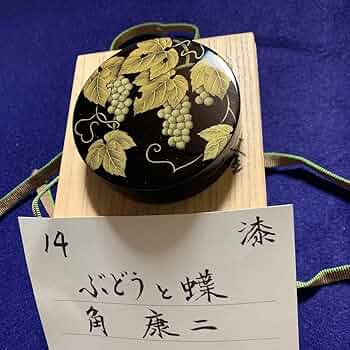 14 漆
ぶどうと蝶
角 康二